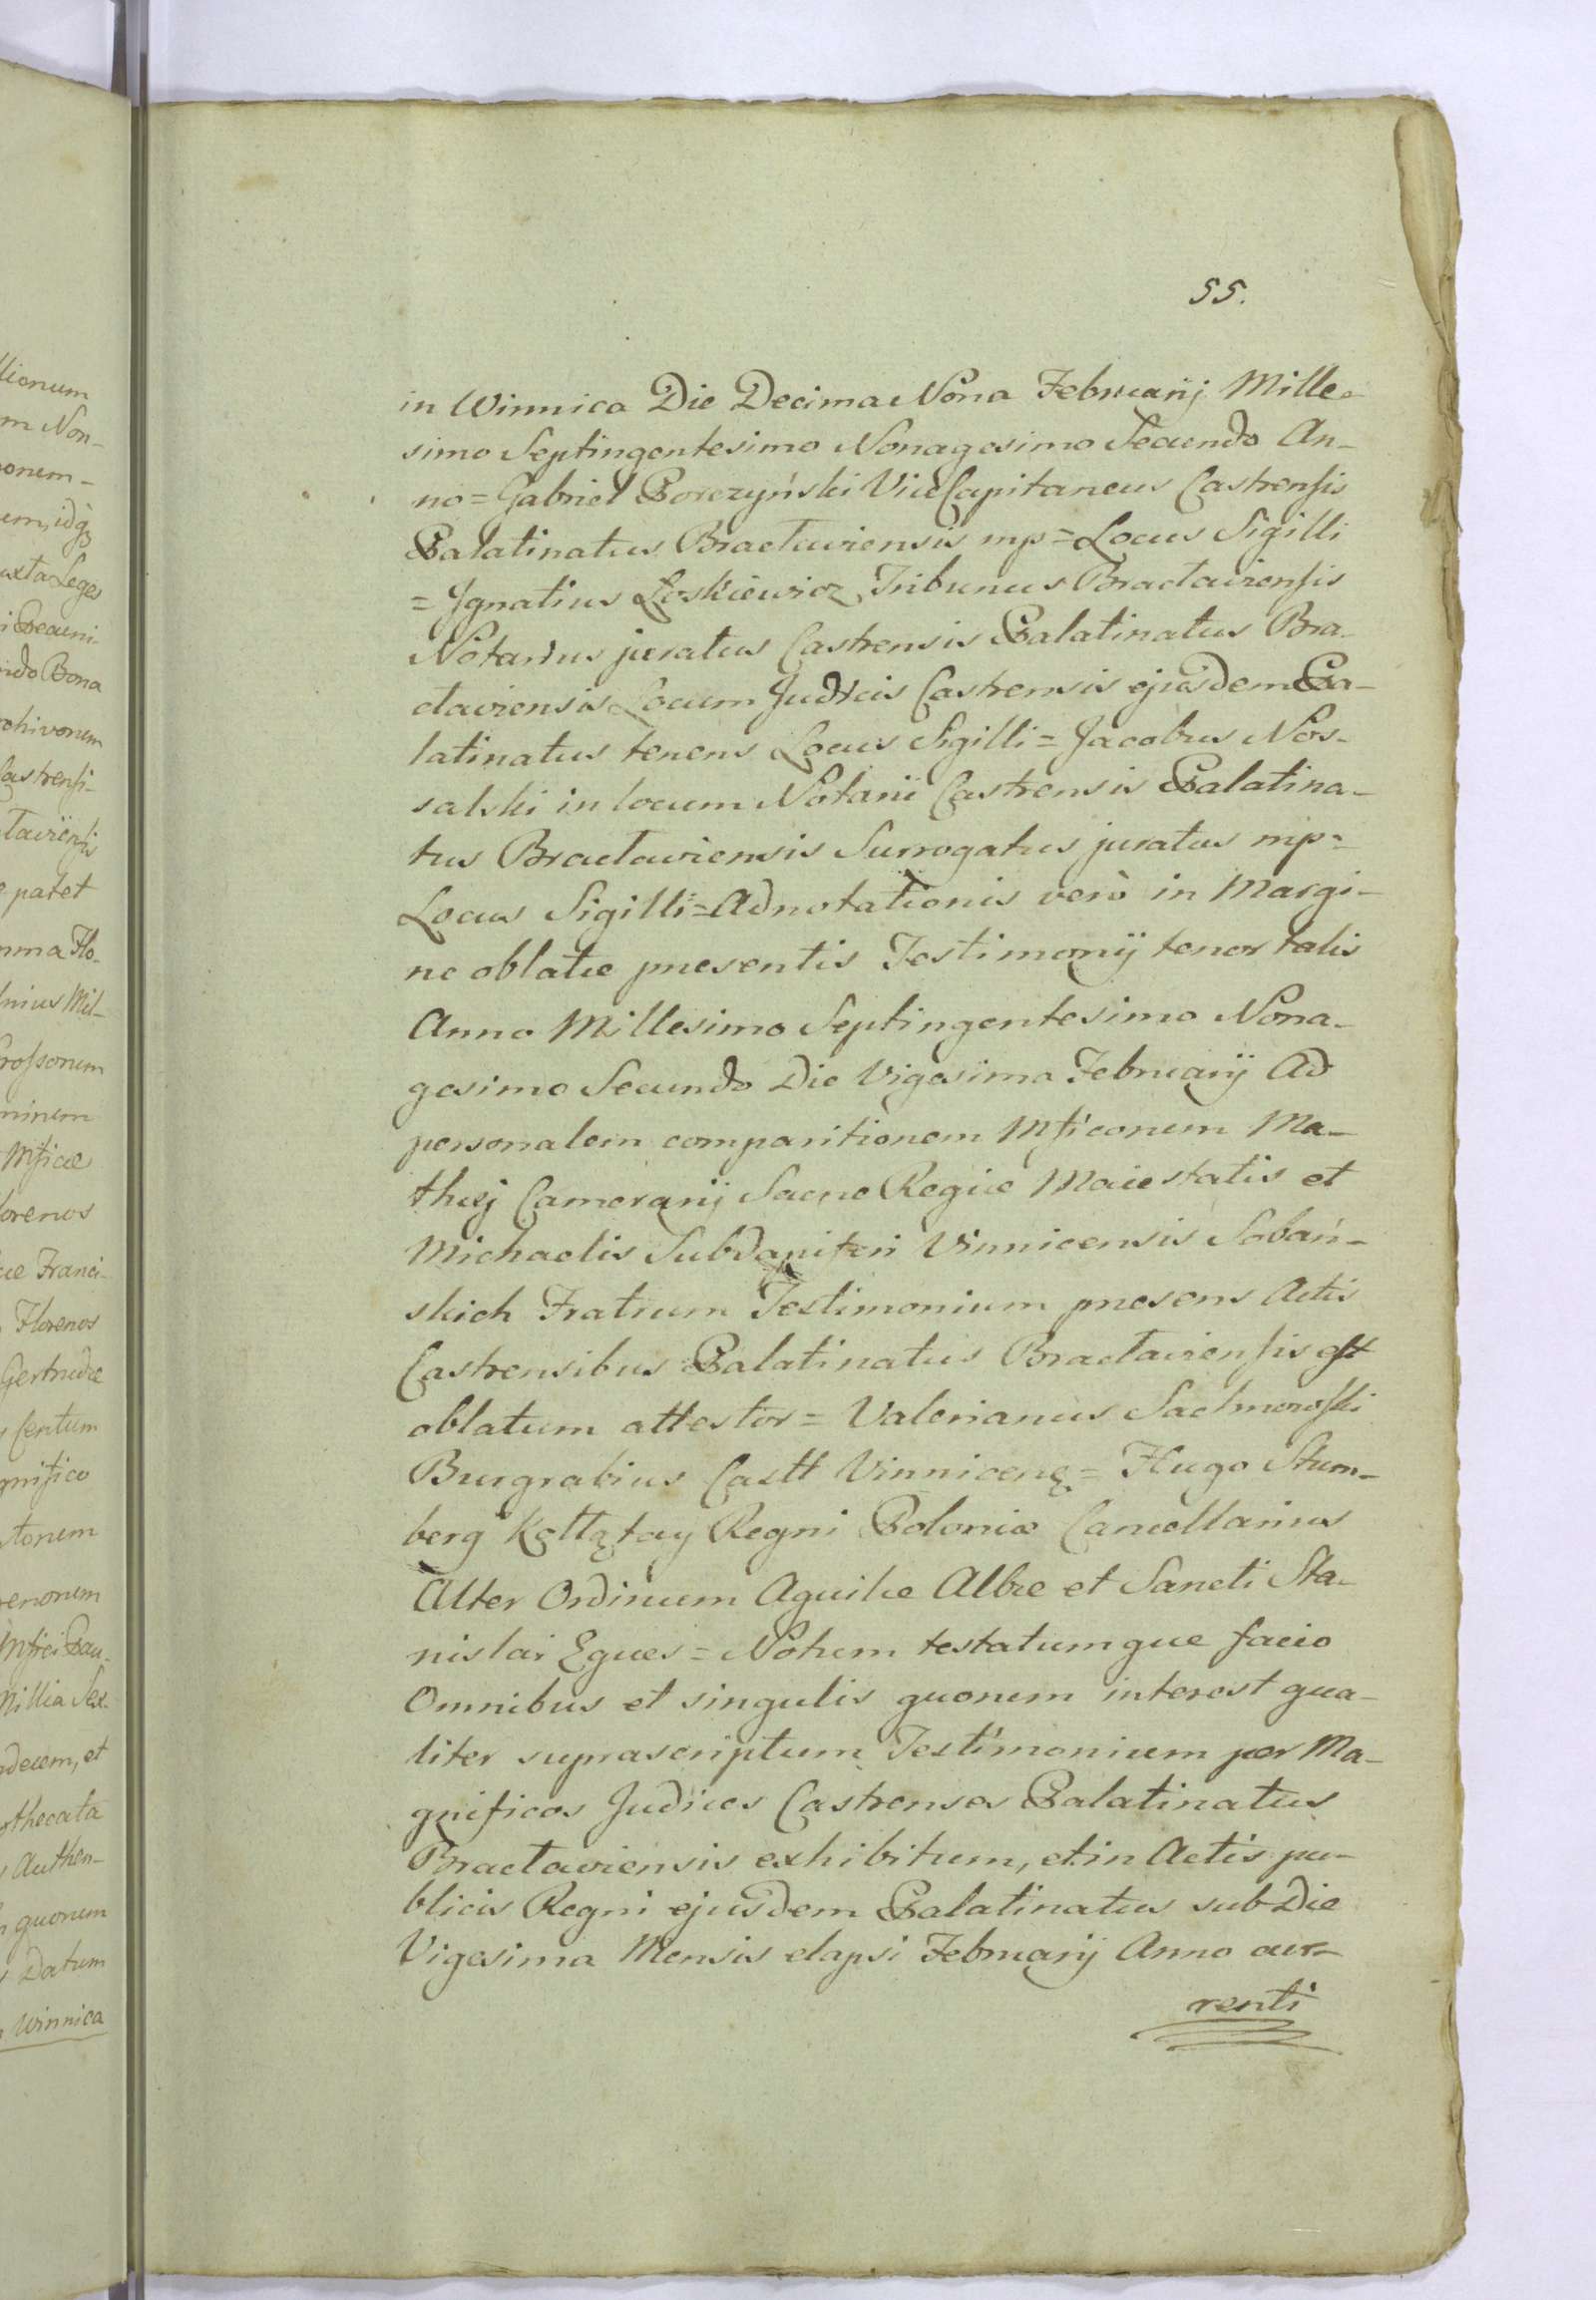 55.
in Winnica Die Decima Nona Februarij Mille-
simo Septingentesimo Nonagesimo Secundo An-
no = Gabriel Porczyński ViceCapitaneus Castrensis
Palatinatus Braclaviensis mp = Locus Sigilli
= Ignatius Łoskiewicz Tribunus Braclaviensis
Notarius juratus Castrensis Palatinatus Bra-
claviensis Locum Judicis Castrensis ejusdem Pa-
latinatus tenens Locus Sigilli = Jacobus Nos-
salski in locum Notarii Castrensis Palatina-
tus Braclaviensis Surrogatus juratus mp =
Locus Sigilli = Adnotationis verò in Margi-
ne oblatæ præsentis Testimonij tenor talis
Anno Millesimo Septingentesimo Nona-
gesimo Secundo Die Vigesima Februarij Ad
personalem comparitionem Mficorum Ma-
thej Camerarij Sacræ Regiæ Maiestatis et
Michaelis Subdapiferi Vinnicensis Sobań-
skich Fratrum Testimonium præsens Actis
Castrensibus Palatinatus Braclaviensis est
oblatum attestor = Valerianus
Burgrabius Castt Vinnicen = Hugo Stum-
berg Kołłątay Regni Poloniæ Cancellarius
Alter Ordinum Aquilæ Albæ et Sancti Sta-
nislai Eques = Notum testatumque facio
Omnibus et singulis quorum interest qua-
liter suprascriptum Testimonium per Ma-
gnificos Judices Castrenses Palatinatus
Braclaviensis exhibitum, et in Actis pu-
blicis Regni ejusdem Palatinatus sub Die
Vigesima Mensis elapsi Februarij Anno cur-
renti
lionum
m Non-
onem-
em, idq3
uxta Leges
i Pecuni-
ndo Bona
rchivorum
Castrensi-
taviensis
patet
mma Flo-
nius Mil-
Grossorum
ninum
Mficæ
lorenos
æ Franci-
Florenos
Gertrudæ
Centum
gnifico
torum
renorum
Mfici Pau-
Millia Sex-
ndecem, et
othecata
Authen-
quorum
Datum
Winnica